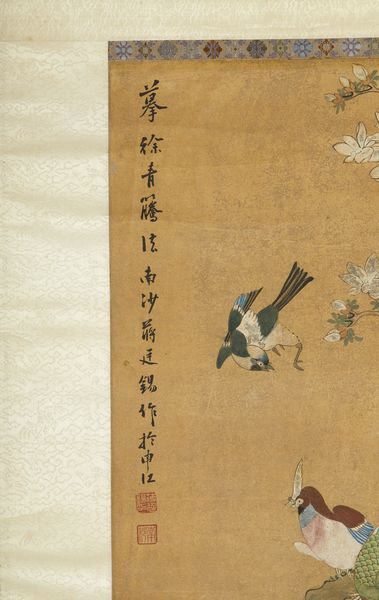 摹徐青藤法南沙蒋廷錫作於申江